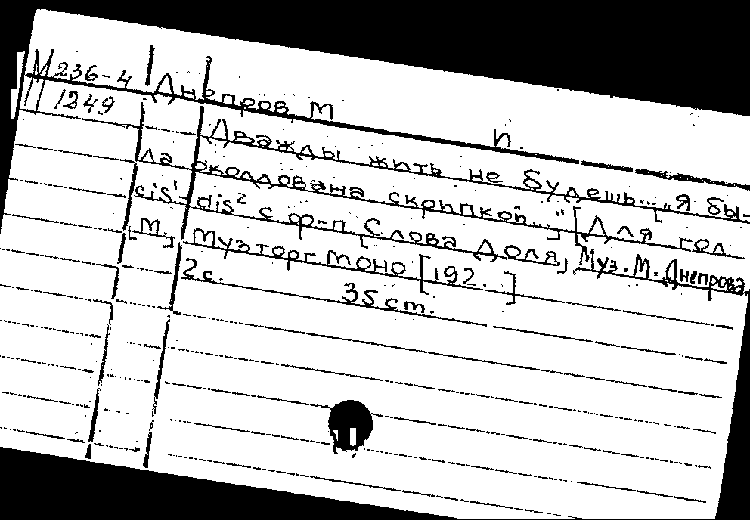 М 236-4 Днепров М
1249 п.
Дважды жить не будешь... „Я бы-
ла околдована скрипкой..." [Для гол.
cis¹-dis² с ф-п Слова Доля, Муз. М. Днепрова
[М.] Музторг МОНО [192. ]
2 с. 35 cm.